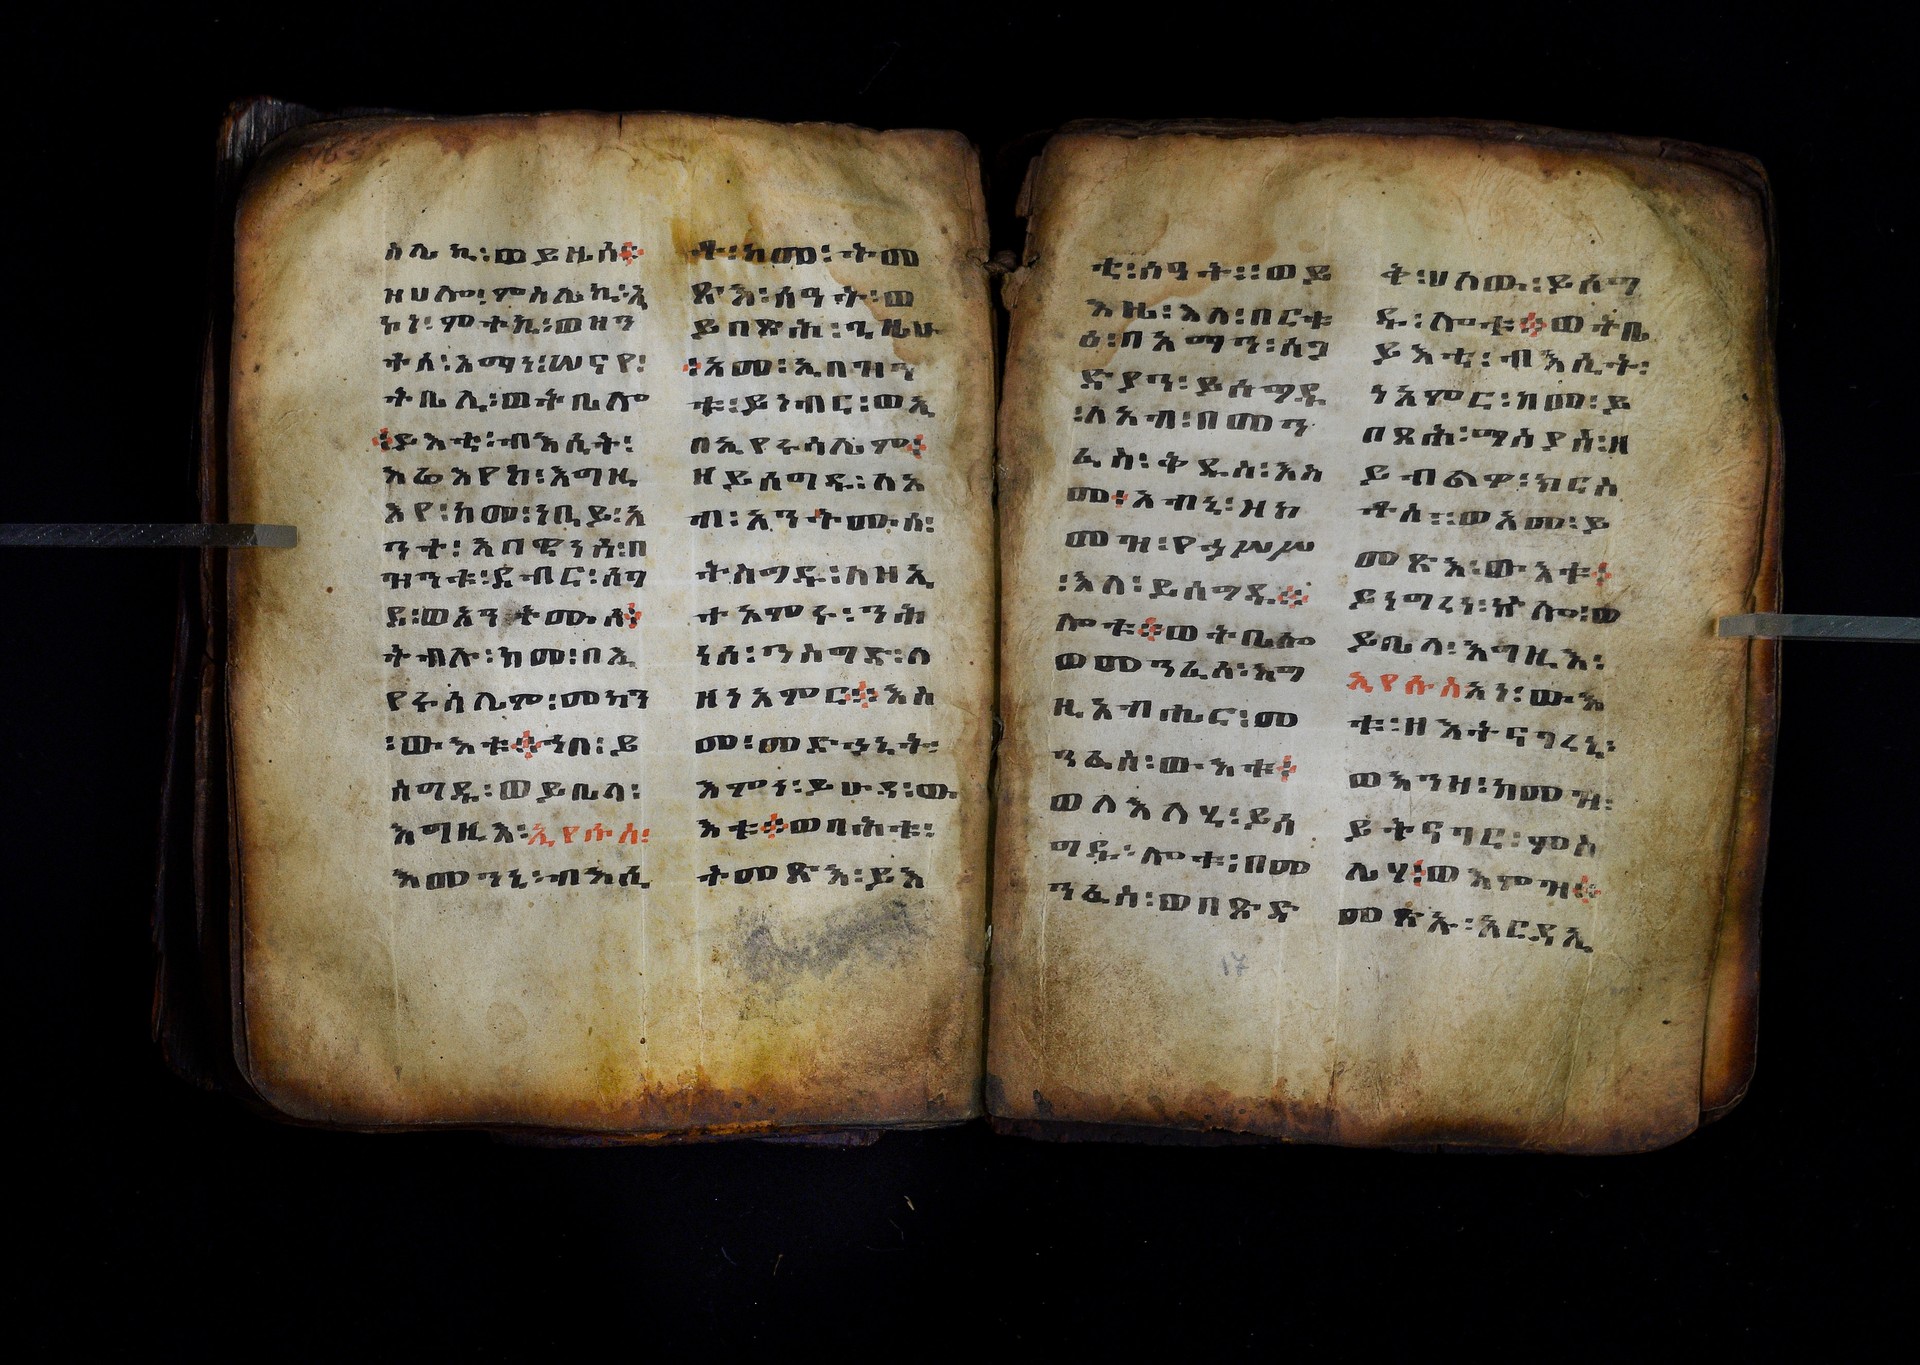 ስሌኪ፡ወይዜሰ፨
ዝሀሎ፡ምስሌኪ፡ኢ
ኮነ፡ምተኪ፡ወዘን
ተሰ፡አማነ፡ሠናየ፡
ትቤሊ፡ወትቤሎ
፡ይእቲ፡ብእሲት፡
እፎእየከ፡እግዚ
እየ፡ከመ፡ነቢይ፡አ
ንተ፡አበዊነሰ፡በ
ዝንቱ፡ደብር፡ሰግ
ዱ፡ወአንትሙሰ፡
ትብሉ፡ከመ፡በኢ
የሩሳሌም፡መካን
፡ውእቱ፨ኀበ፡ይ
ሰግዱ፡ወይቤላ፡
እግዚእ፡ኢየሱስ፡
እመንኒ፡ብእሲ
ቶ፡ከመ፡ትመ
ጽእ፡ሰዓት፡ወ
ይበጽሕ፡ጊዜሁ
፡አመ፡ኢበዝን
ቱ፡ይነብር፡ወኢ
በኢየሩሳሌም፡
ዘይሰግዱ፡ለአ
ብ፡አንትሙሰ፡
ትሰግዱ፡ለዘኢ
ተአምሩ፡ንሕ
ነሰ፡ንሰግድ፡ለ
ዘነአምር፨እስ
መ፡መድኃኒት፡
እምነ፡ይሁዳ፡ው
እቱ፨ወባሕቱ፡
ትመጽእ፡ይእ
ቲ፡ሰዓት፡፡ወይ
እዜ፡እለ፡በርቱ
ዕ፡በአማን፡ሰጋ
ድያን፡ይሰግዱ
፡ለአብ፡በመን
ፈስ፡ቅዱስ፡እስ
መ፡አብኒ፡ዘከ
መዝ፡የኃሥሥ
፡እለ፡ይሰግዱ፨
ሎቱ፨ወትቤሎ
ወመንፈስ፡እግ
ዚአብሔር፡መ
ንፈስ፡ውእቱ፡
ወለእለሂ፡ይሰ
ግዱ፡ሎቱ፡በመ
ንፈስ፡ወበጽድ
ቅ፡ሀለው፡ይሰግ
ዱ፡ሎቱ፨ወትቤ
ይእቲ፡ብእሲት፡
ነአምር፡ከመ፡ይ
በጽሕ፡ማስያስ፡ዘ
ይብልዎ፡ክርስ
ቶስ፡፡ወአመ፡ይ
መጽእ፡ውእቱ፡
ይነግረነ፡ኵሎ፡ወ
ይቤላ፡እግዚእ፡
ኢየሱስአነ፡ውእ
ቱ፡ዘእትናገረኪ፡
ወእንዘ፡ከመዝ፡
ይትናገር፡ምስ
ሌሃ፡ወእምዝ፨
መጽኡ፡አርዳኢ
17